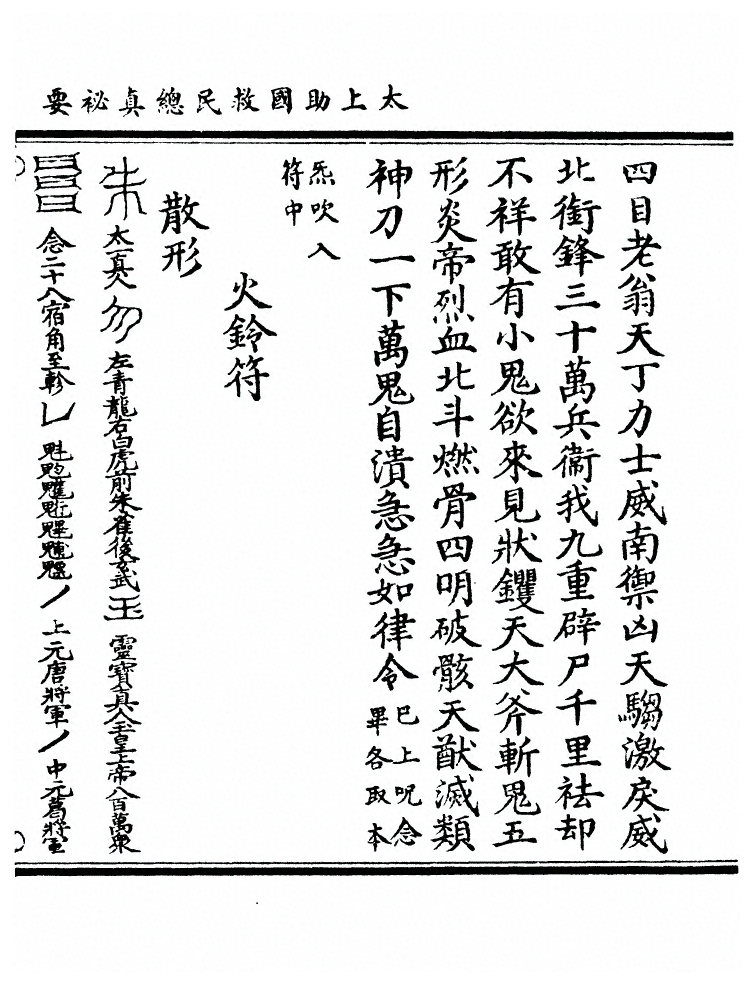 太上助國救民總真祕要
四目老翁天丁力士威南禦凶天騶激戾威
北銜鋒三十萬兵衞我九重辟尸千里袪却
不祥敢有小鬼欲來見狀钁天大斧斬鬼五
形炎帝烈血北斗燃骨四明破骸天猷滅類
神刀一下萬鬼自潰急急如律令巳上呪念
畢各取本
炁吹入
符中
火鈴符
散形
太一真人 勿 左青龍右白虎前朱雀後玄武 王 靈寶真人玉皇上帝八百萬衆
念二十八宿角至軫 魁 上元唐將軍 中元葛將軍